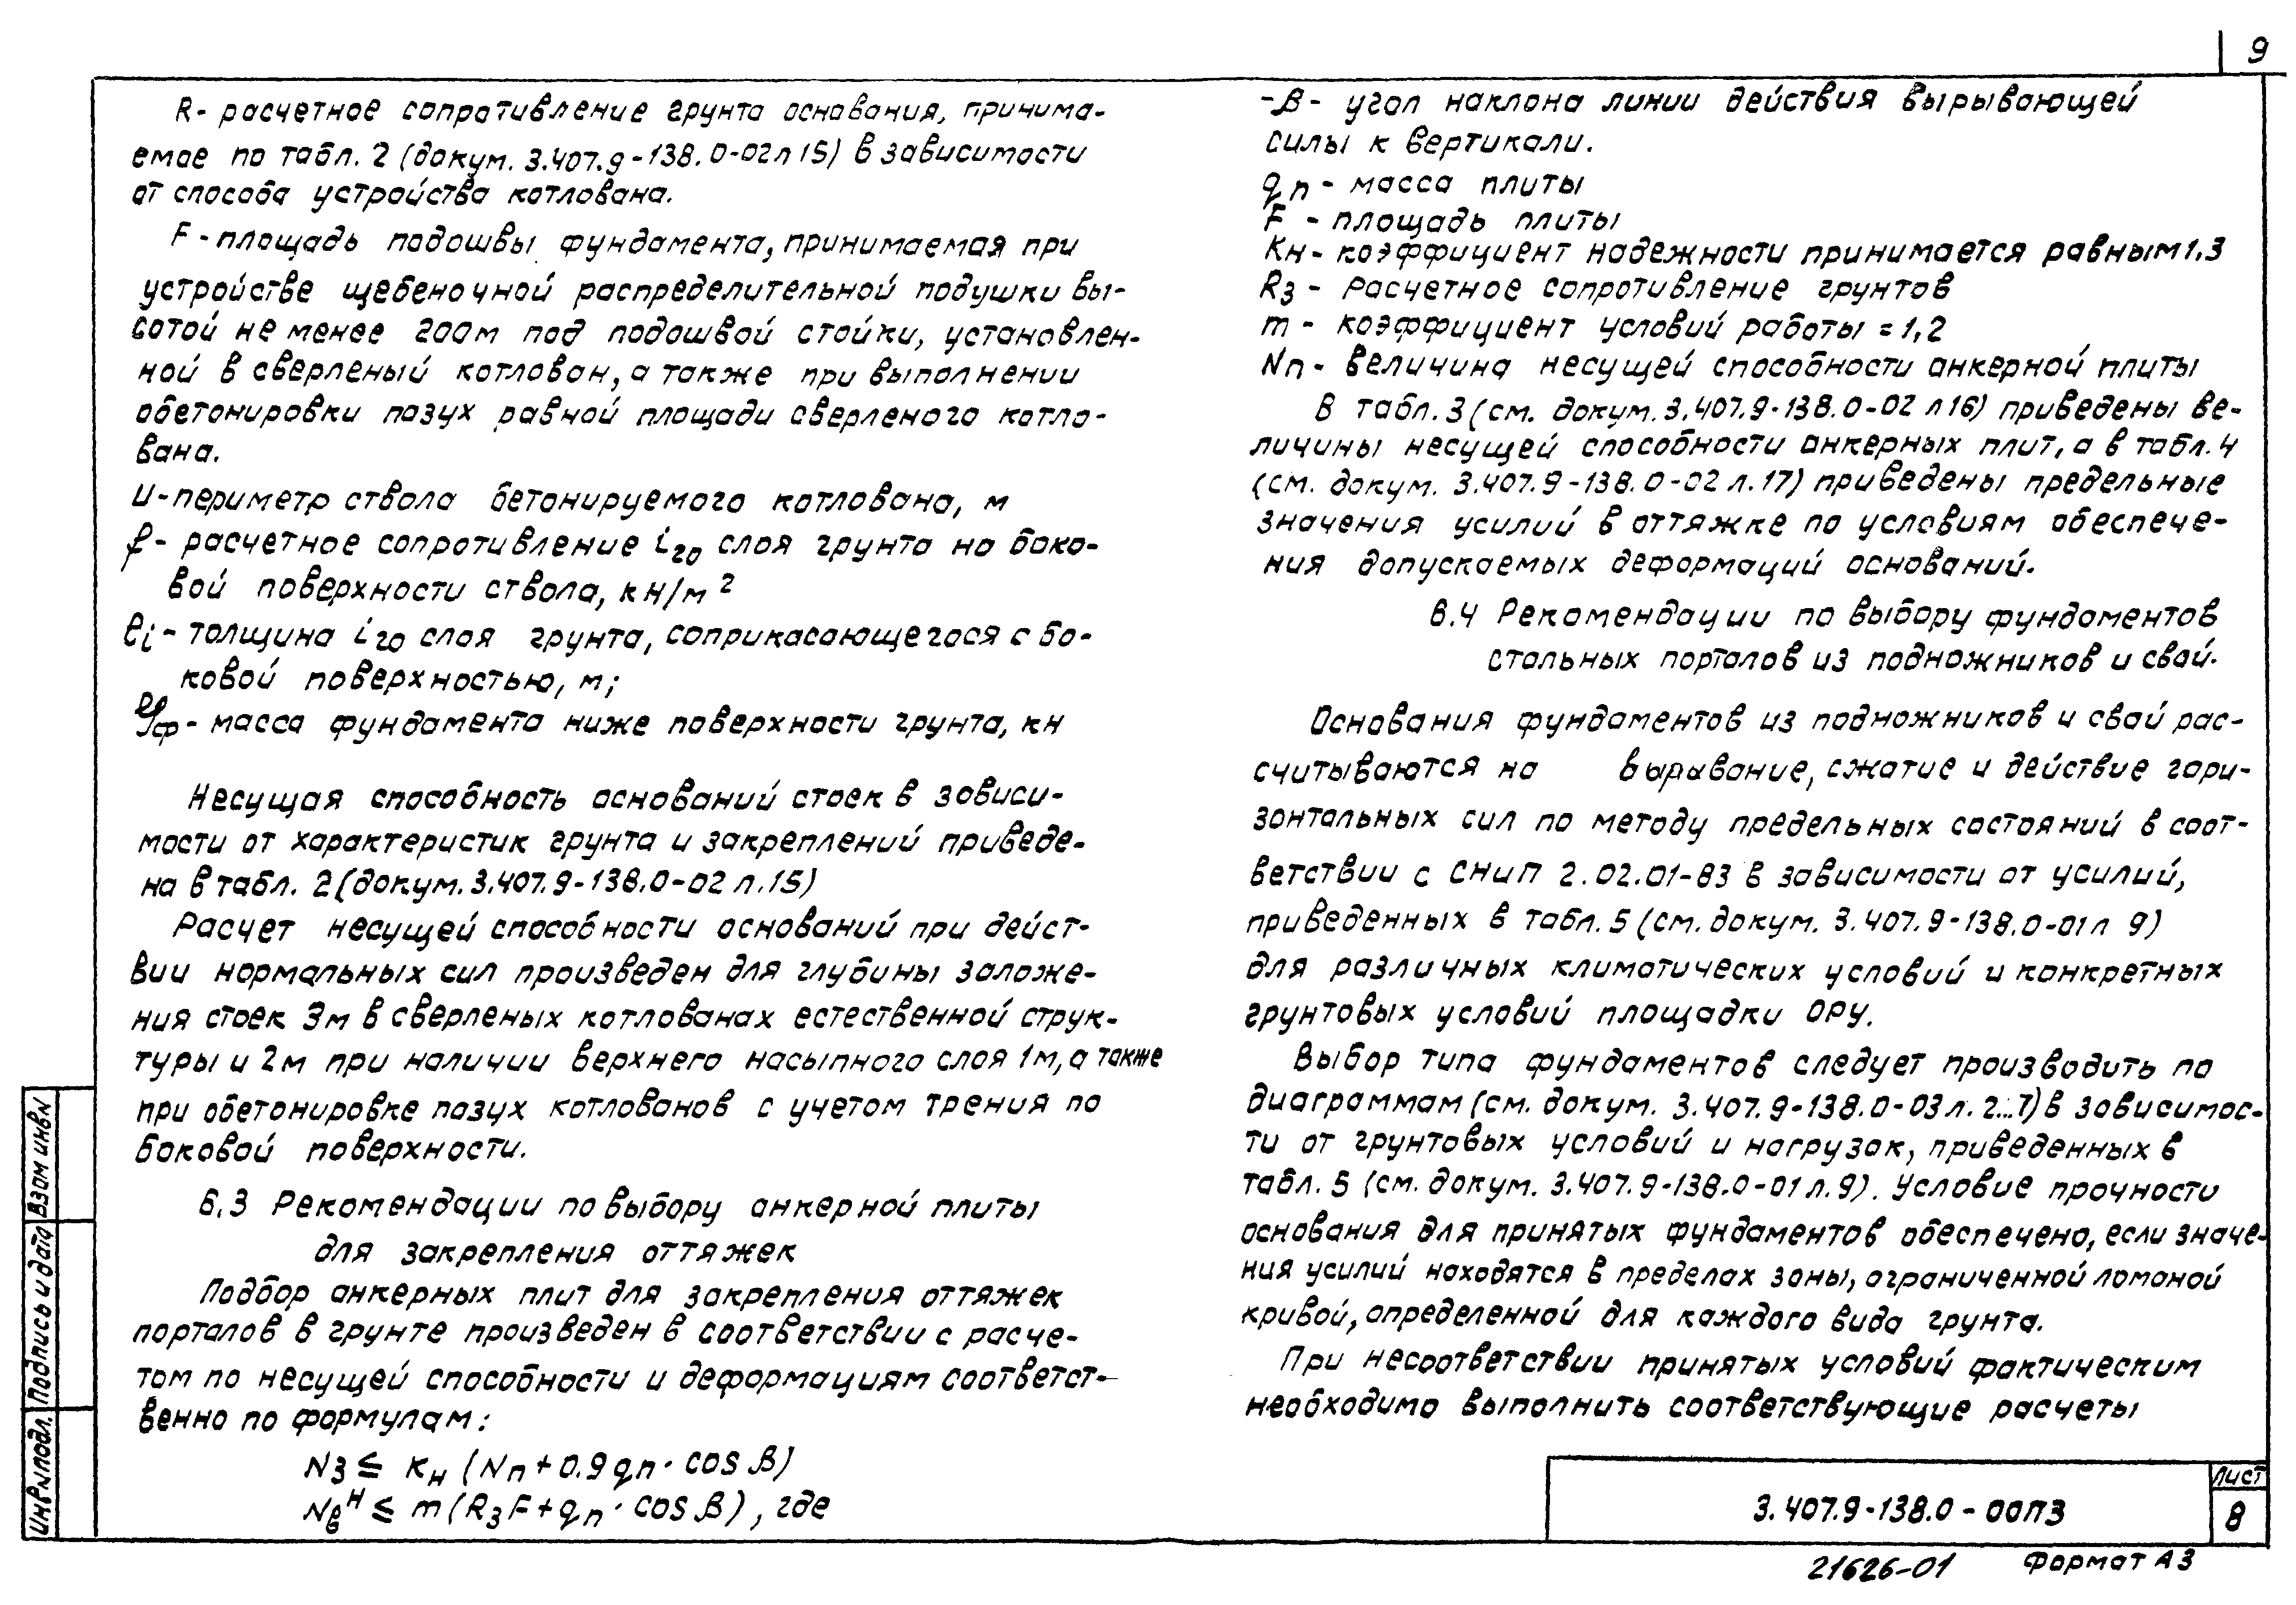 9
R- расчетное сопротивление грунта основания, принима-
емое по табл. 2 (докум. 3.407.9-138.0-02л 15) в зависимости
от способа устройства котлована.
F - площадь подошвы фундамента, принимаемая при
устройстве щебеночной распределительной подушки вы-
сотой не менее 200м под подошвой стойки, установлен-
ной в сверленый котлован, а также при выполнении
обетонировки пазух равной площади сверленого котло-
вана.
U-периметр ствола бетонируемого котлована, м
f - расчетное сопротивление iго слоя грунта на боко-
вой поверхности ствола, кн/м²
ℓi - толщина iго слоя грунта, соприкасающегося с бо-
ковой поверхностью, м;
gф - масса фундамента ниже поверхности грунта, кн
Несущая способность оснований стоек в зависи-
мости от характеристик грунта и закреплений приведе-
на в табл. 2 (докум. 3.407.9-138.0-02 л.15)
Расчет несущей способности оснований при дейст-
вии нормальных сил произведен для глубины заложе-
ния стоек 3м в сверленых котлованах естественной струк-
туры и 2м при наличии верхнего насыпного слоя 1м, а также
при обетонировке пазух котлованов с учетом трения по
боковой поверхности.
6.3 Рекомендации по выбору анкерной плиты
для закрепления оттяжек
Подбор анкерных плит для закрепления оттяжек
порталов в грунте произведен в соответствии с расче-
том по несущей способности и деформациям соответст-
венно по формулам:
Nз ≤ кн (Nп + 0.9 qп · cos β)
Nвᴴ ≤ m (RзF + qп · cos β), где
-β- угол наклона линии действия вырывающей
силы к вертикали.
qп - масса плиты
F - площадь плиты
Кн - коэффициент надежности принимается равным 1,3
Rз - расчетное сопротивление грунтов
m - коэффициент условий работы = 1,2
Nп - величина несущей способности анкерной плиты
В табл. 3 (см. докум. 3.407.9-138.0-02 л 16) приведены ве-
личины несущей способности анкерных плит, а в табл. 4
(см. докум. 3.407.9-138.0-02 л. 17) приведены предельные
значения усилий в оттяжке по условиям обеспече-
ния допускаемых деформаций оснований.
6.4 Рекомендации по выбору фундаментов
стальных порталов из подножников и свай.
Основания фундаментов из подножников и свай рас-
считываются на вырывание, сжатие и действие гори-
зонтальных сил по методу предельных состояний в соот-
ветствии с СНиП 2.02.01-83 в зависимости от усилий,
приведенных в табл. 5 (см. докум. 3.407.9-138.0-01 л 9)
для различных климатических условий и конкретных
грунтовых условий площадки ОРУ.
Выбор типа фундаментов следует производить по
диаграммам (см. докум. 3.407.9-138.0-03 л. 2...7) в зависимос-
ти от грунтовых условий и нагрузок, приведенных в
табл. 5 (см. докум. 3.407.9-138.0-01 л. 9). Условие прочности
основания для принятых фундаментов обеспечено, если значе-
ния усилий находятся в пределах зоны, ограниченной ломаной
кривой, определенной для каждого вида грунта.
При несоответствии принятых условий фактическим
необходимо выполнить соответствующие расчеты
Инв№подл. Подпись и дата Взам инв№
3.407.9-138.0-00ПЗ
Лист
8
21626-01
Формат А3